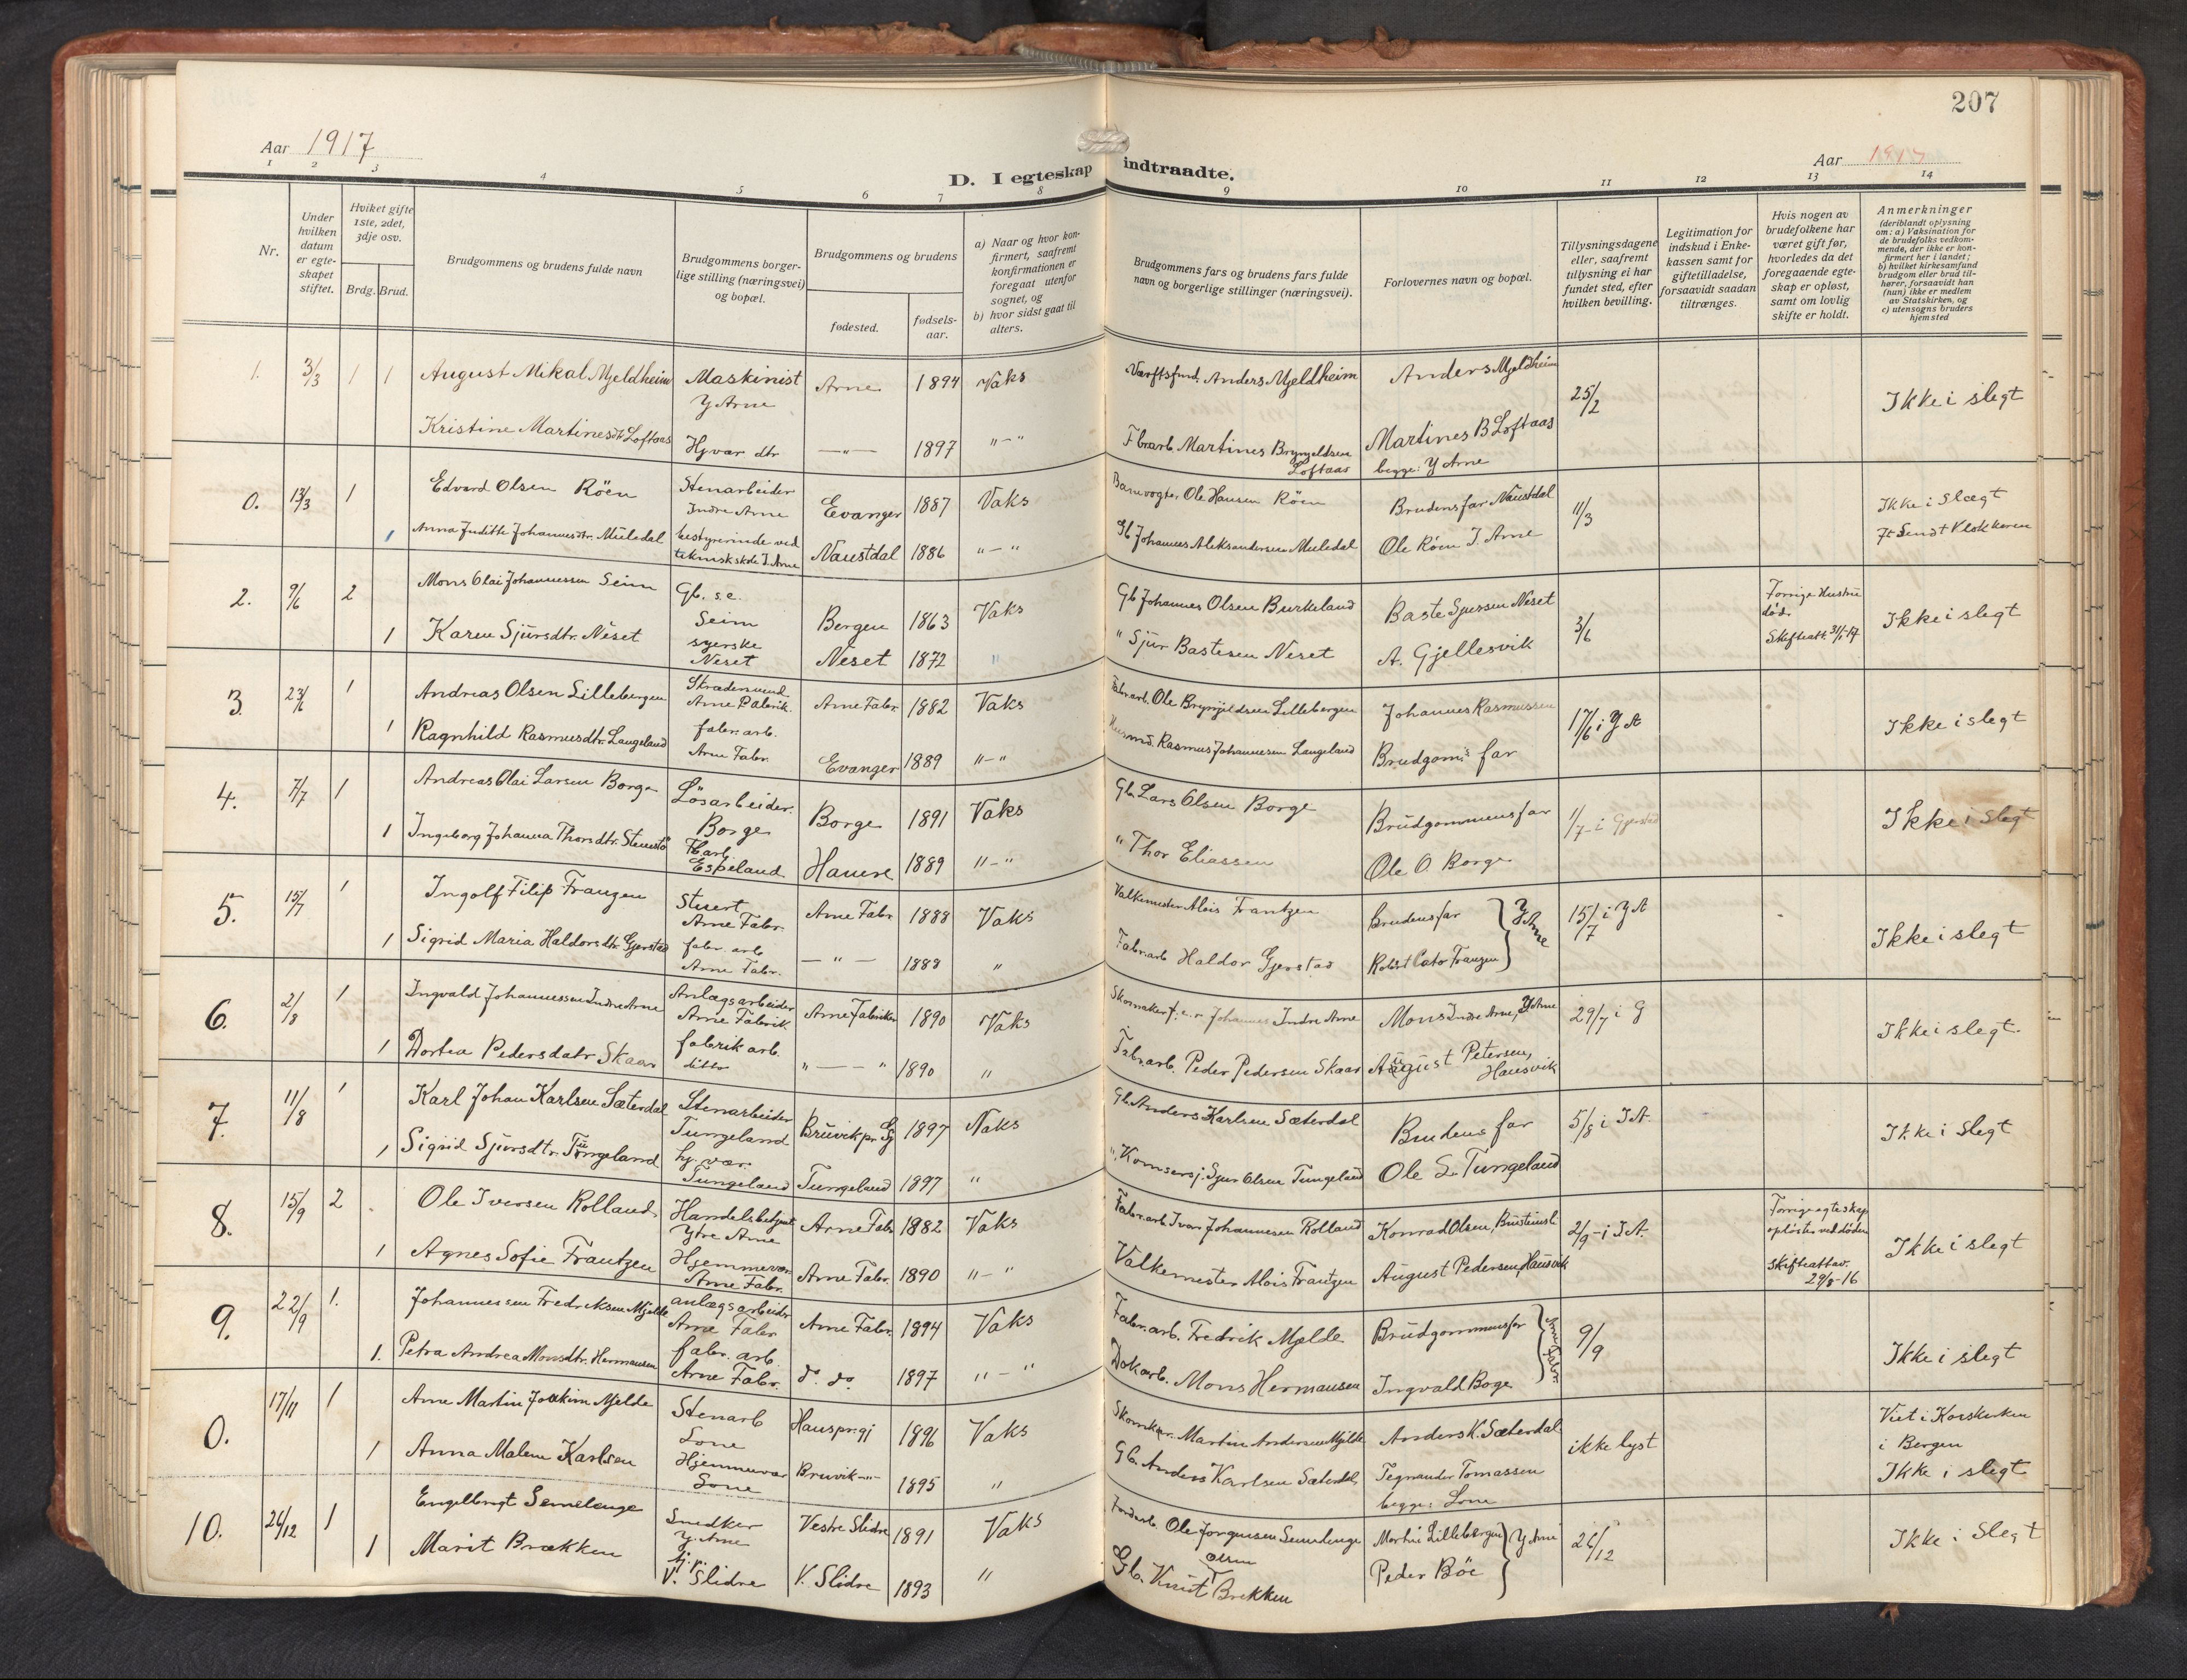 207
Aar 1917
Aar 1917
D. I egteskap indtraadte.
1 2 3 4 5 6 7 8 9 10 11 12 13 14
Nr.
Under hvilken datum er egteskapet stiftet.
Hviket gifte 1ste, 2det, 3dje osv.
Brdg. Brud.
Brudgommens og brudens fulde navn
Brudgommens borgerlige stilling (næringsvei) og bopæl.
Brudgommens og brudens
fødested.
fødselsaar.
a) Naar og hvor konfirmert, saafremt konfirmationen er foregaat utenfor sognet, og
b) hvor sidst gaat til alters.
Brudgommens fars og brudens fars fulde navn og borgerlige stillinger (næringsvei).
Forlovernes navn og bopæl.
Tillysningsdagene eller, saafremt tillysning ei har fundet sted, efter hvilken bevilling.
Legitimation for indskud i Enkekassen samt for giftetilladelse, forsaavidt saadan tiltrænges.
Hvis nogen av brudefolkene har været gift før, hvorledes da det foregaaende egteskap er opløst, samt om lovlig skifte er holdt.
Anmerkninger (deriblandt oplysning om: a) Vaksination for de brudefolks vedkommende, der ikke er konfirmert her i landet; b) hvilket kirkesamfund brudgom eller brud tilhører, forsaavidt han (hun) ikke er medlem av Statskirken, og c) utensogns bruders hjemsted
1. 3/3 1 1 August Mikal Mjeldheim Maskinist Y Arne Arne 1894 Vaks Anders Mjeldheim Anders Mjeldheim 25/2 Ikke i slegt
Kristine Martinesdt. Loftaas Hj vær dtr —"— 1897 "-" Fbrarb. Martines Brynjeldsen Loftaas Martines B Loftaas begge: Y Arne
0. 13/3 1 Edvard Olsen Röen Stenarbeider Indre Arne Evanger 1887 Vaks Banevogter Ole Hansen Röen Brudens far Naustdal 11/3 Ikke i Slægt
1 Anna Juditte Johannesdtr. Muledal bestyrerinde ved teknisk skole I. Arne Naustdal 1886 "-" Gb Johannes Aleksandersen Muledal Ole Röen I. Arne Sendt Klokkeren
2. 9/6 2 Mons Olai Johannessen Seim Gb. s.e. Seim Bergen 1863 Vaks Gb Johannes Olsen Burkeland Baste Sjursen Neset 3/6 Forrige Hustru död. Skifteatt. Ikke i slegt
1 Karen Sjursdtr. Neset syerske Neset Neset 1872 " " Sjur Bastesen Neset A. Gjellesvik
3 23/6 1 Andreas Olsen Lillebergen Arne Fabrik. Arne Fabr. 1882 Vaks Fabr.arb. Ole Brynjeldsen Lillebergen Johannes Rasmussen 17/6 i Y A Ikke i slegt
1 Ragnhild Rasmusdtr. Langeland fabr. arb. Arne Fabr. Evanger 1889 "-" Husmd. Rasmus Johannesen Langeland Brudgoms far
4. 7/7 1 Andreas Olai Larsen Borge Lösarbeider. Borge Borge 1891 Vaks Gb. Lars Olsen Borge Brudgommens far 1/7 - i Gjerstad Ikke i slegt
1 Ingeborg Johanna Thorsdtr. Stenstö Espeland 1889 "-" " Thor Eliassen Ole O. Borge
5. 15/7 1 Ingolf Filip Franzen Arne Fabr. Arne Fabr 1888 Vaks Valkemester Alois Frantzen Brudens far Y Arne 15/7 i Y A Ikke i slegt
1 Sigrid Maria Haldorsdtr. Gjerstad fabr. arb Arne Fabr. — " — 1888 " Fabr.arb Haldor Gjerstad Robert Cato Franzen
6. 2/8 1 Ingvald Johannessen Indre Arne Anlægsarbeider Arne Fabrik. Arne Fabriker 1890 Vaks Skomaker Johannes Indre Arne Mons Indre Arne, Y Arne 29/7 i G Ikke i slegt.
1 Dortea Pedersdatr Skaar fabrik arb. ditto "——" 1890 " Fabr.arb. Peder Pedersen Skaar August Petersen, Hausvik
7. 11/8 1 Karl Johan Karlsen Sæterdal Stenarbeider Tungeland Bruvik pr Gj 1897 Vaks Gb. Anders Karlsen Sæterdal Brudens far 5/8 i I A. Ikke i slegt
1 Sigrid Sjursdtr. Tungeland hj. vær. Tungeland Tungeland 1897 " Sjur Olsen Tungeland Ole S. Tungeland
8. 15/9 2 Ole Iversen Rolland Handelsbetjent Ytre Arne Arne Fabr 1882 Vaks Fabr.arb Ivar Johannesen Rolland Konrad Olsen, 2/9 - i I A. Forrige egteskap opløstes ved døden Skifteattav. 29/8-16 Ikke i slegt
1 Agnes Sofie Frantzen Hjemmevær. Arne Fabr. Arne Fabr. 1890 "-" Valkemester Alois Frantzen August Pedersen, Hausvik
9. 22/9 1. Johannessen Fredriksen Mjelde anlægsarbeider Arne Fabr Arne Fabr. 1894 Vaks Fabr.arb. Fredrik Mjelde Brudgommens far Arne Fabr. 9/9 Ikke i slegt
1. Petra Andrea Monsdtr. Hermansen fabr. arb. Arne Fabr. d. do. 1897 "- " Dokarb. Mons Hermansen Ingvald Boge
0. 17/11 1 Arne Martin Joakim Mjelde Stenarb Lone Haus pr. gj 1896 Vaks Skomker. Martin Andersen Mjelde Anders K. Sæterdal ikke lyst Viet i Korskirken i Bergen
1 Anna Malene Karlsen Hjemmevær Lone Bruvik -"- 1895 " Gb. Anders Karlsen Sæterdal Tegnander Tomassen begge: Lone Ikke i slegt
10. 26/12 1 Engelbrigt Semelenge Snedker Y. Arne Vestre Slidre 1891 Vaks Ole Jorgensen Semelenge Martin Lillebergen Y Arne 26/12 Ikke i Slegt
1 Marit Brækken V. Slidre V. Slidre 1893 " Gb. Knut Olsen Brekken Peder Böe